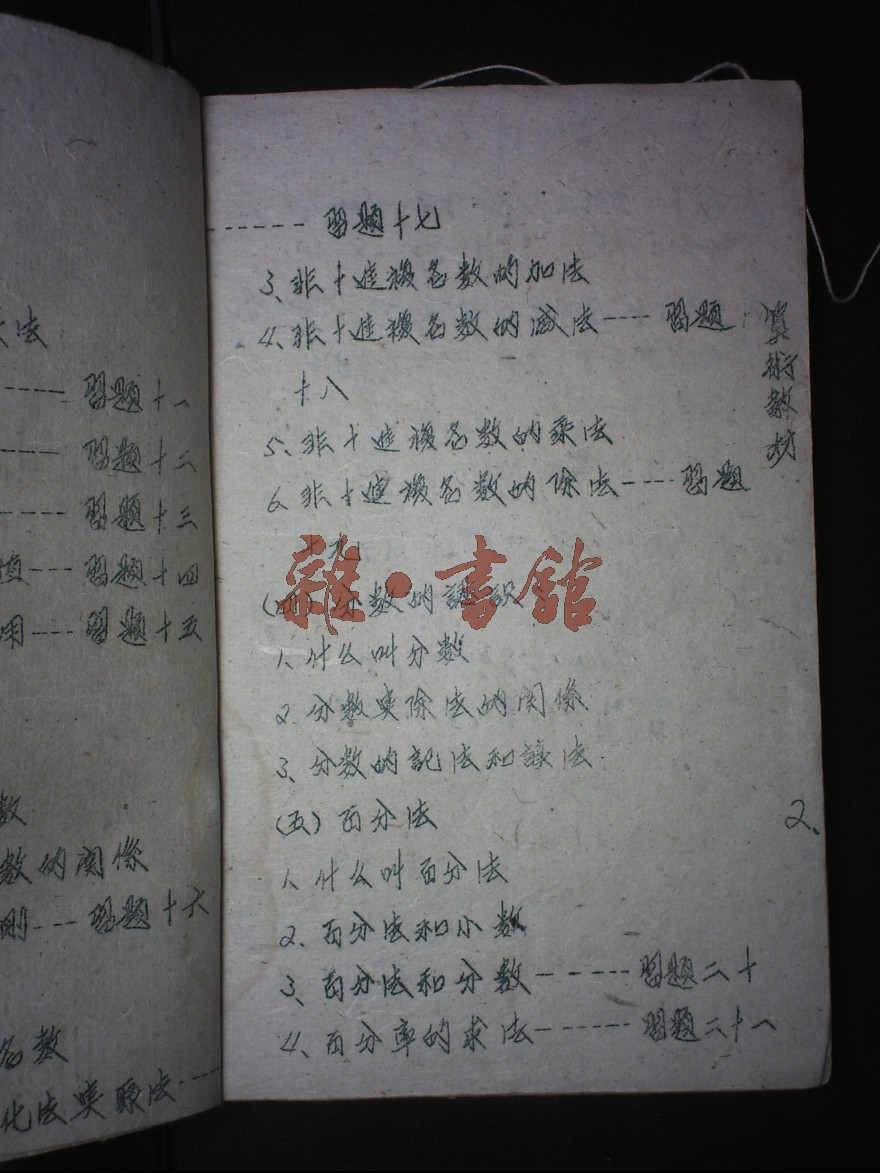 法
------ 習題十一
------ 習題十二
------ 習題十三
--- 習題十四
用--- 習題十五
数
数的関係
則--- 習題十六
名数
化法與聚法------
------ 習題十七
3、非十進複名数的加法
4、非十進複名数的減法---- 習題
十八
5、非十進複名数的乘法
6、非十進複名数的除法---- 習題
十九
(四) 分数的認識
1、什么叫分数
2、分数與除法的関係
3、分数的記法和讀法
(五) 百分法
1、什么叫百分法
2、百分法和小数
3、百分法和分数------ 習題二十
4、百分率的求法------ 習題二十一
算術教材
2.
雜·書館